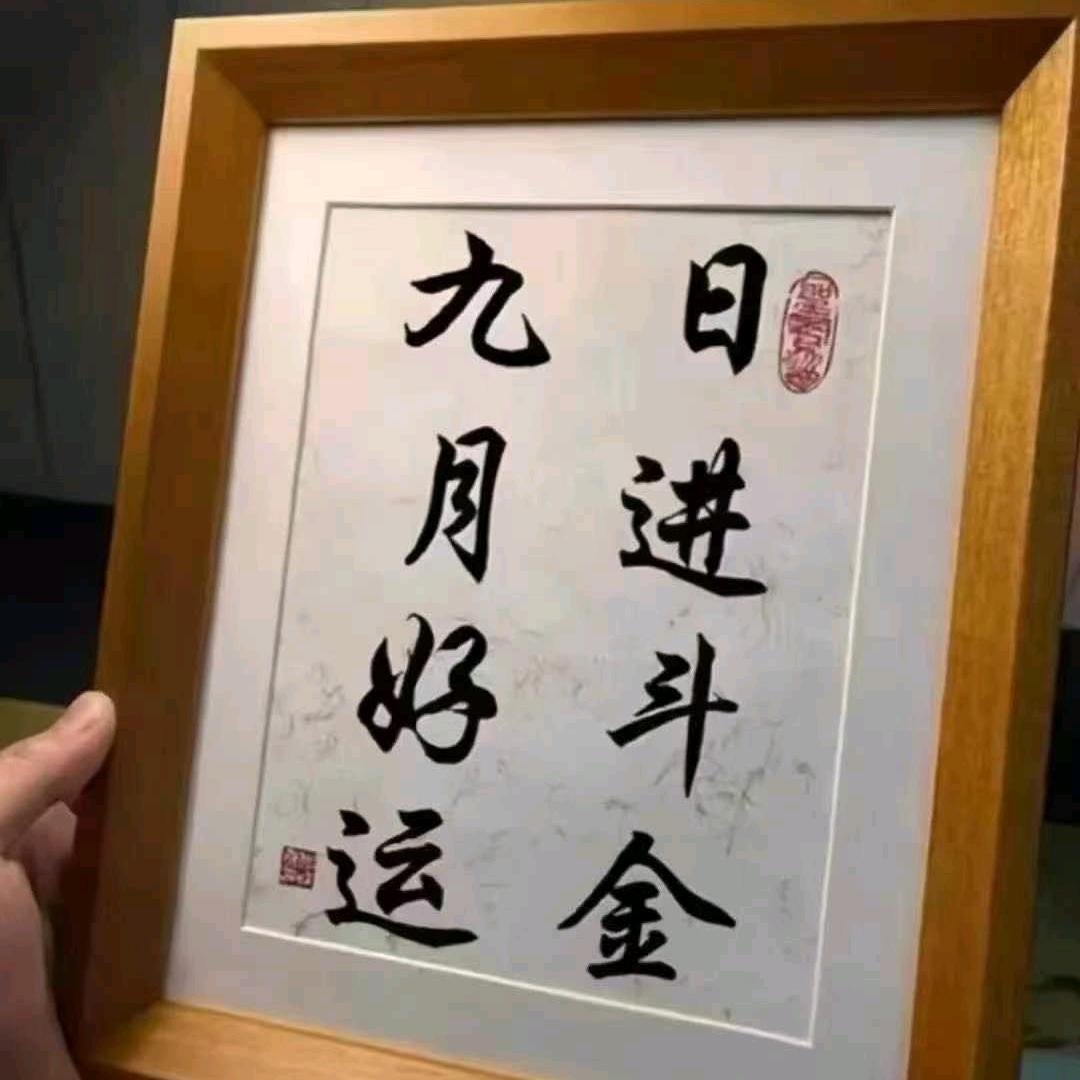 日进斗金
九月好运